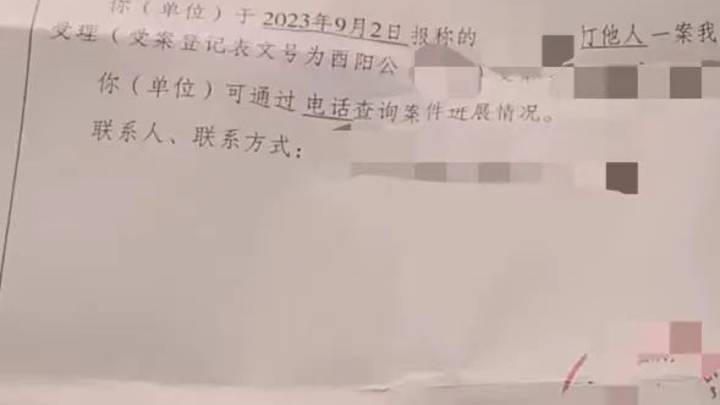 你（单位）于 2023年9月2日 报称的 打他人一案我
受理（受案登记表文号为酉阳公
你（单位）可通过 电话查询案件进展情况。
联系人、联系方式：